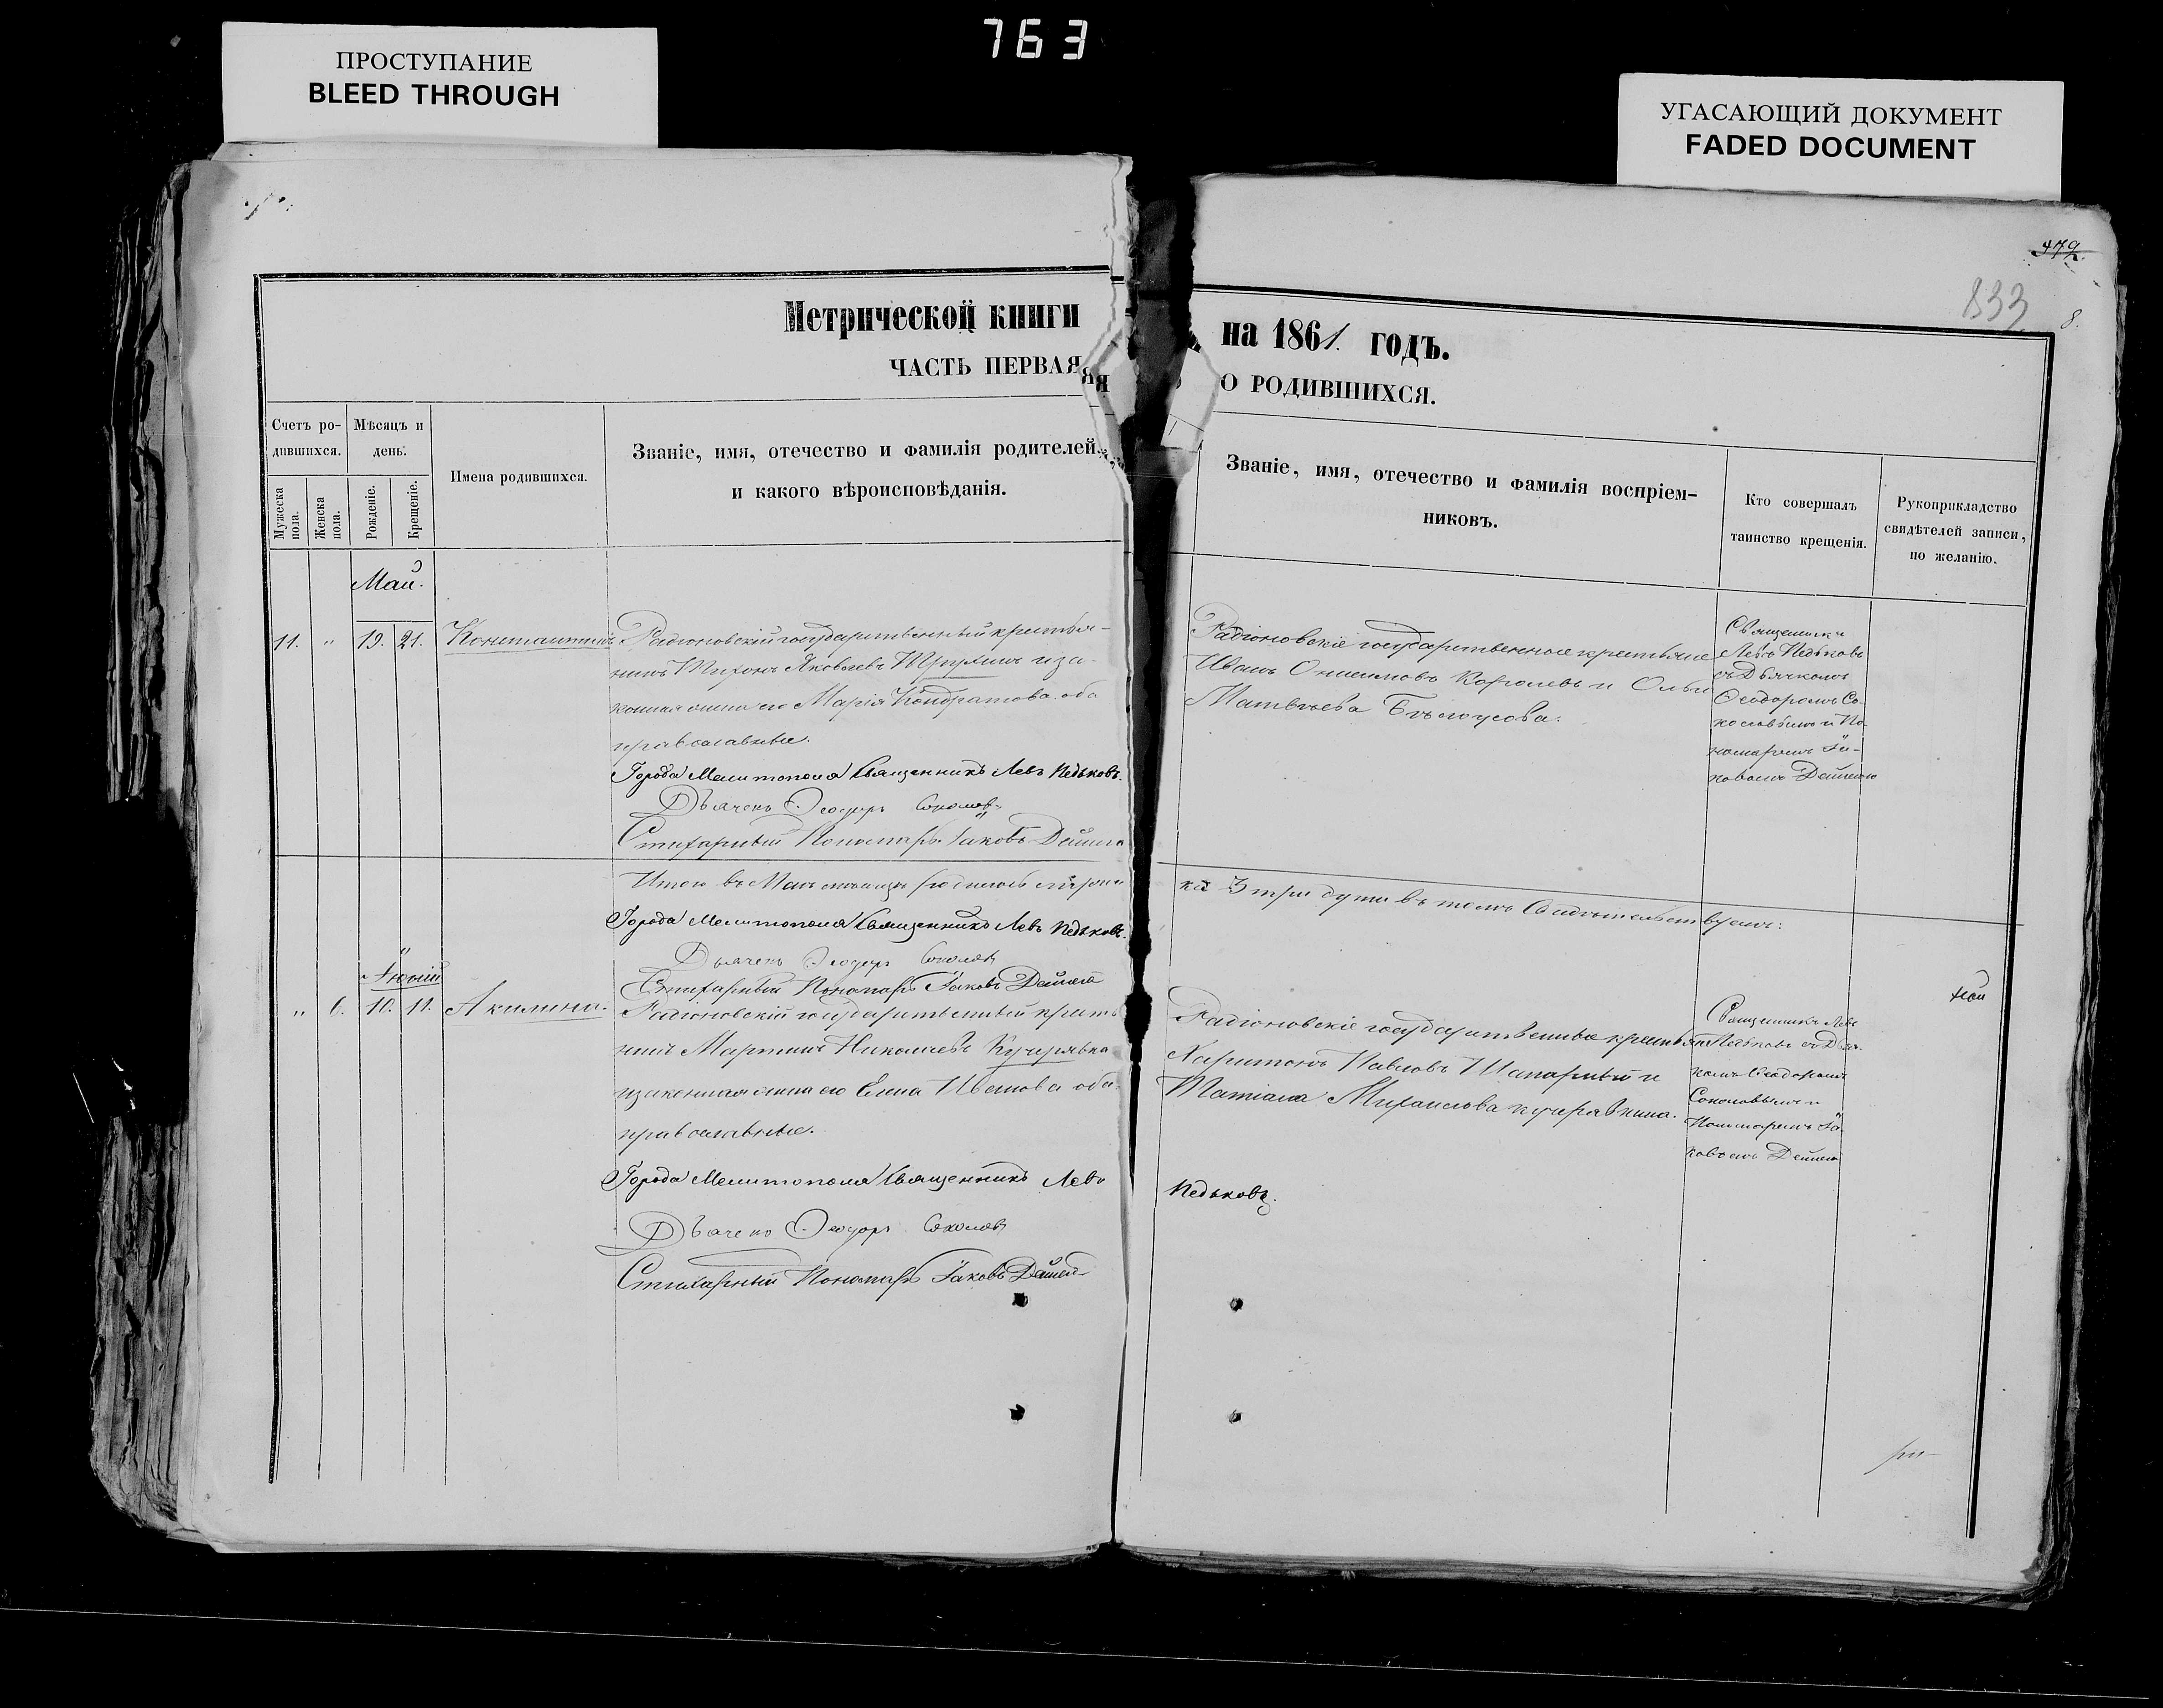 763
ПРОСТУПАНИЕ
BLEED THROUGH
УГАСАЮЩИЙ ДОКУМЕНТ
FADED DOCUMENT
479
833
8.
Метрической книги на 1861 годъ.
ЧАСТЬ ПЕРВАЯ О РОДИВШИХСЯ.
Счетъ ро-
дившихся.
Мужеска
пола.
Женска
пола.
Мѣсяцъ и
день.
Рожденіе.
Крещеніе.
Имена родившихся.
Званіе, имя, отечество и фамилія родителей,
и какого вѣроисповѣданія.
Званіе, имя, отечество и фамилія воспріем-
никовъ.
Кто совершалъ
таинство крещенія.
Рукоприкладство
свидѣтелей записи,
по желанію.
Май.
11. " 19. 21. Константинъ
Радіоновскій государственный крестья-
нинъ Тихонъ Яковлевъ и за-
конная жена его Марія Кондратова оба
православные.
Города Мелитополя Священникъ Левъ Педьковъ.
Дьячекъ Ѳеодоръ Соколовъ
Стихарный Пономарь Іаковъ
Радіоновскіе государственные крестьяне
Иванъ Онисимовъ Королевъ и Ольга
Матвѣева Бѣлоусова.
Священникъ
Левъ Педьковъ
съ Дьячкомъ
Ѳеодоромъ Со-
коловымъ и По-
номаремъ Іа-
ковомъ
Итого въ Маѣ мѣсяцѣ родилось
3 три души въ томъ Свидѣтельствуемъ:
Города Мелитополя Священникъ Левъ Педьковъ.
Дьячекъ Ѳеодоръ Соколовъ
Стихарный Пономарь Іаковъ
" 6. 10. 11. Акилина.
Радіоновскій государственный кресть
нинъ Мартинъ Николаевъ
и законная жена его Елена Иванова оба
православные.
Города Мелитополя Священникъ Левъ Педьковъ.
Дьячекъ Ѳеодоръ Соколовъ
Стихарный Пономарь Іаковъ
Радіоновскіе государственные крестьяне
Харитонъ Павловъ Шапарный и
Татіана Михаилова
Священникъ Левъ
Педьковъ съ Дьяч-
комъ Ѳеодоромъ
Соколовымъ и
Пономаремъ Іа-
ковомъ